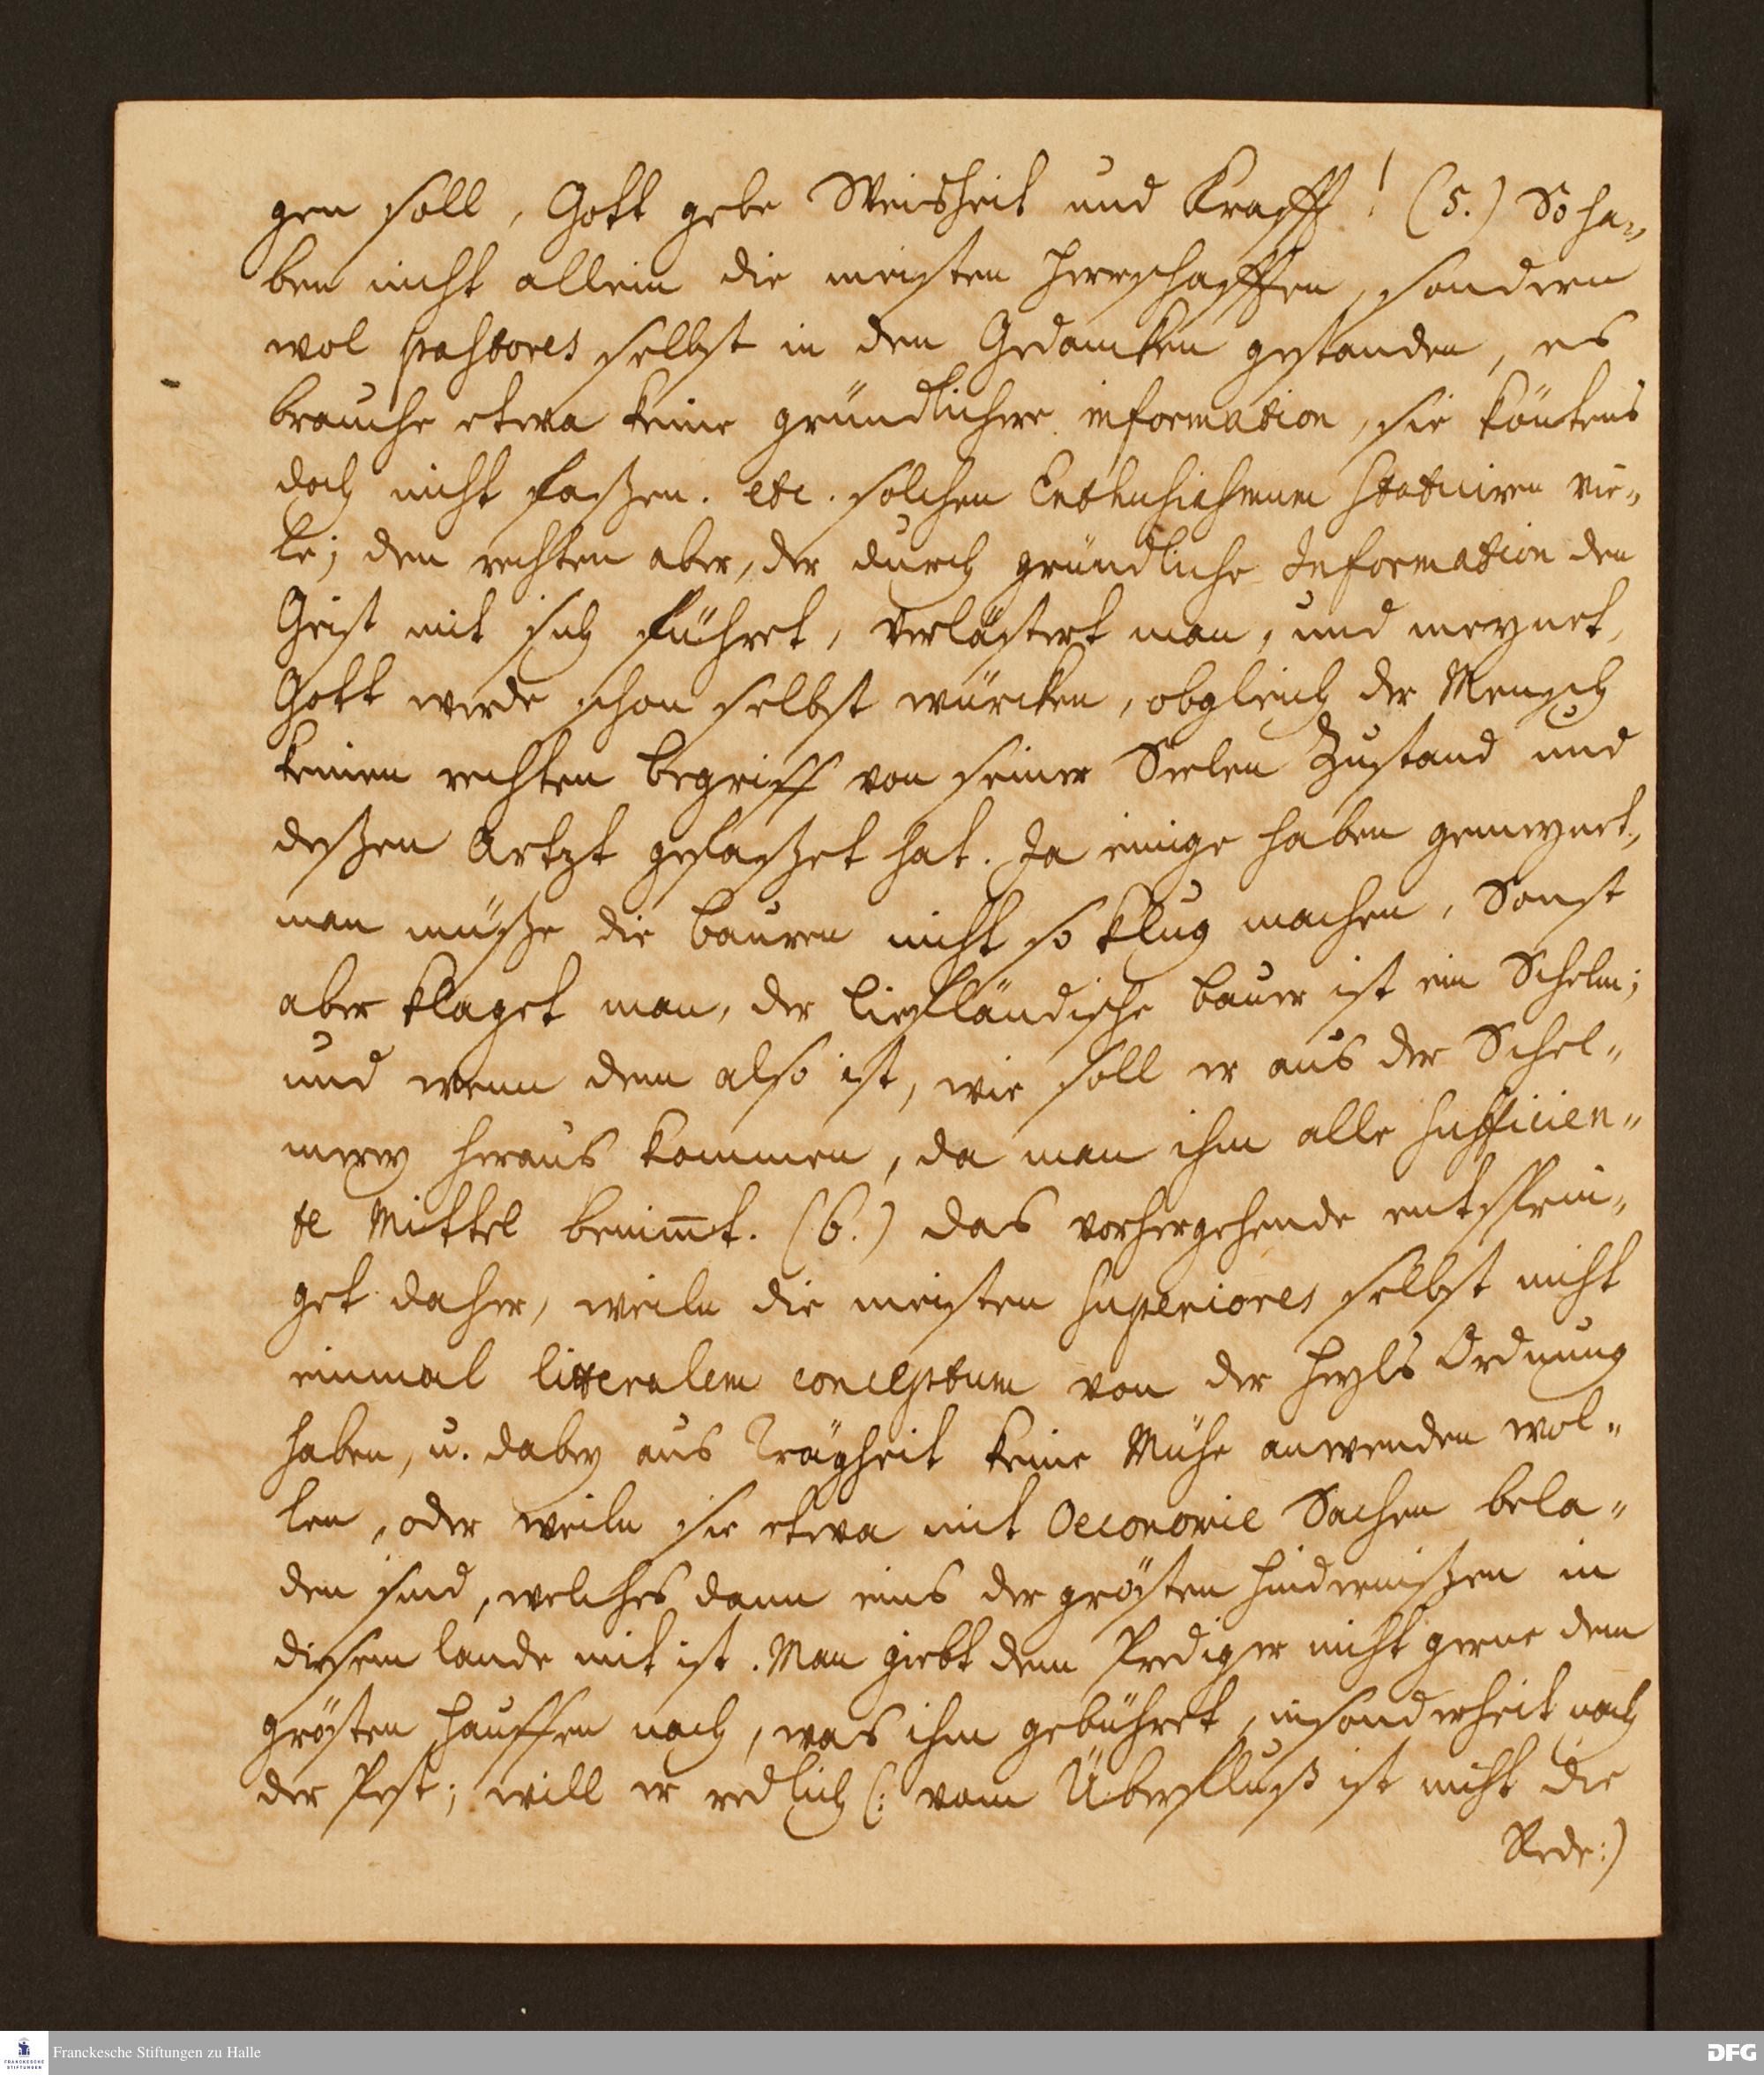 gen soll, Gott gebe Weisheit und Krafft! (5.) So ha„
ben nicht allein die meisten Herrschafften, sondern
wol pastores selbst in den Gedancken gestanden, es
brauche etwa keine gründlichere information, sie köntens
doch nicht faßen. etc. solchen Enthusiasmum statuiren vie„
le; den rechten aber, der durch gründliche Information den
Geist mit sich führet, verlästert man, und meynet,
Gott werde schon selbst würcken, obgleich der Mensch
keinen rechten begriff von seiner Seelen Zustand und
deßen Artzt gefaßet hat. Ja einige haben gemeynet,
man müße die bauren nicht so klug machen, Sonst
aber klaget man, der liefländische bauer ist ein Schelm;
und wenn dem also ist, wie soll er aus der Schel„
merey heraus kommen, da man ihm alle sufficien„
te Mittel benim̅t. (6.) das vorhergehende entsprin„
get daher, weiln die meisten superiores selbst nicht
einmal litteralem conceptum von der Heyls Ordnung
haben, u. dabey aus Trägheit keine Mühe anwenden wol„
len, oder weiln sie etwa mit Oeconomie Sachen bela„
den sind, welches dann eins der grösten Hindernißen in
diesem lande mit ist. Man giebt dem Prediger nicht gerne dem
grösten Hauffen nach, was ihm gebühret, insonderheit nach
der Pest; will er redlich (: vom Überfluß ist nicht die
Rede:)
Franckesche Stiftungen zu Halle
FRANCKESCHE
STIFTUNGEN
DFG